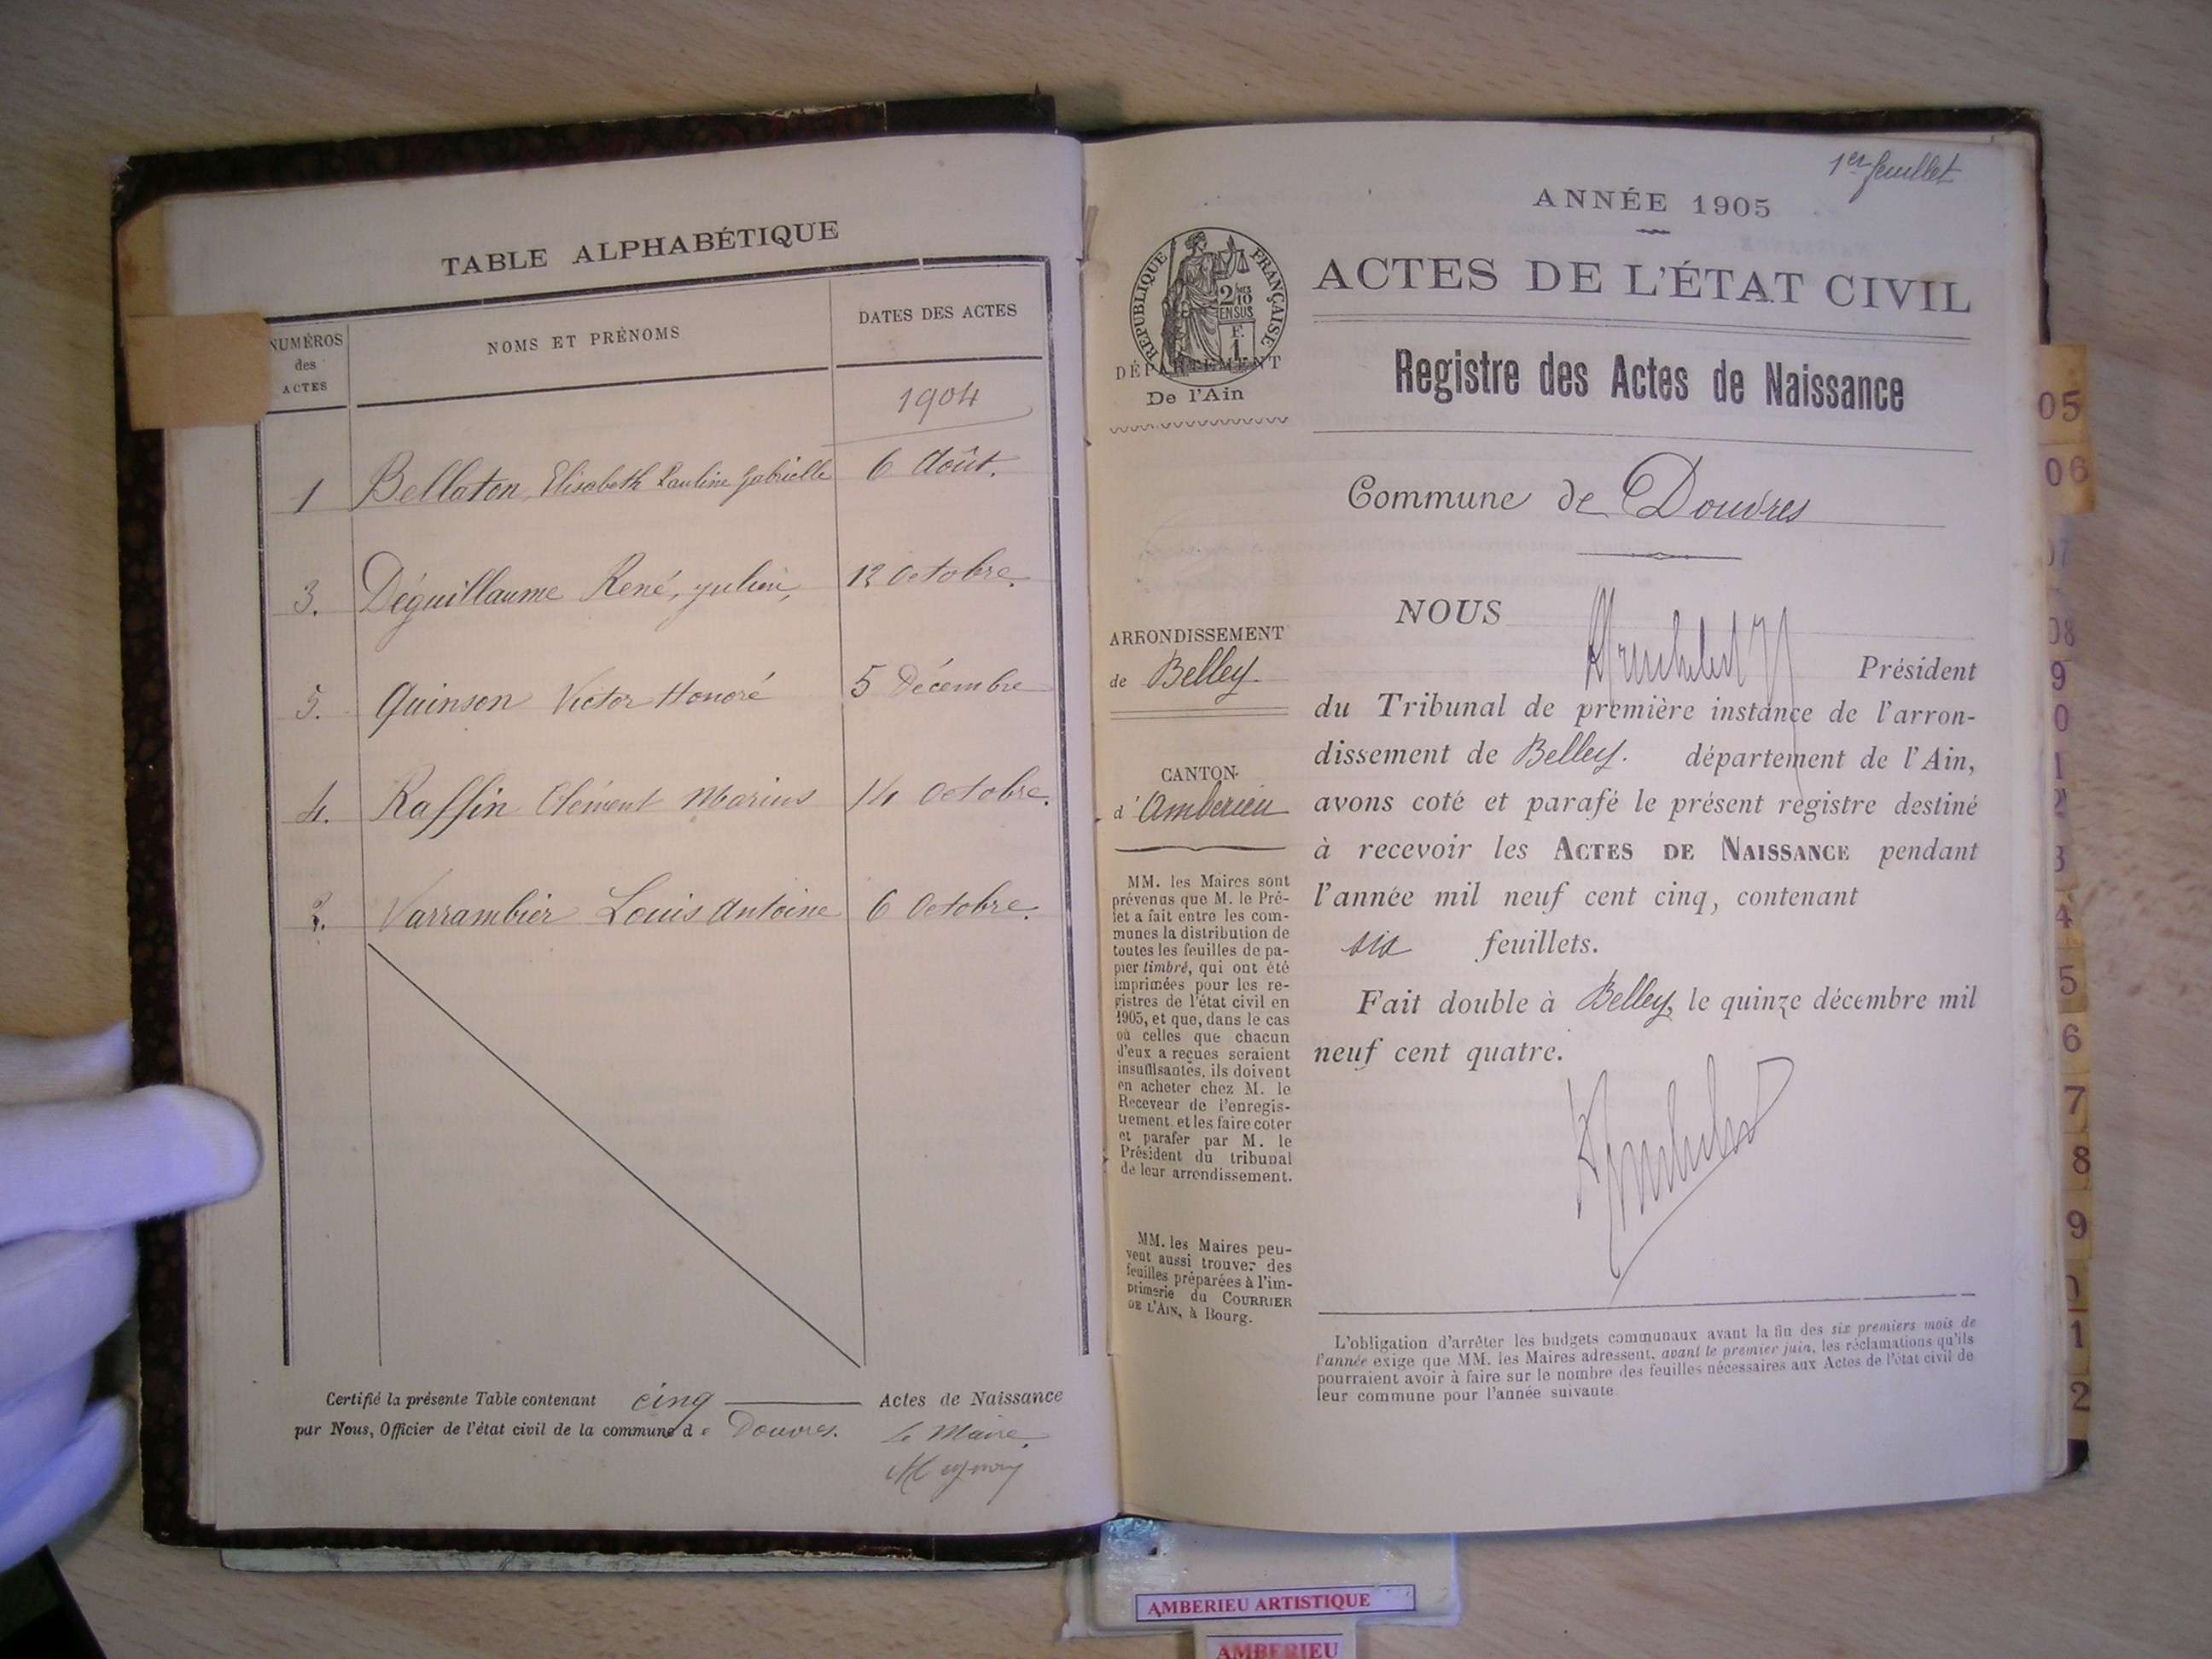 TABLE ALPHABÉTIQUE
NUMÉROS
des
ACTES
NOMS ET PRÉNOMS
DATES DES ACTES
1904
1 Bellaton Elisabeth Pauline Gabrielle 6 Août.
3. Déguillaume René, Julien, 12 Octobre.
5. Quinson Victor Honoré 5 Décembre
4. Raffin Clément Marius 14 Octobre.
2. Varrambier Louis Antoine 6 Octobre.
Certifié la présente Table contenant cinq Actes de Naissance
par Nous, Officier de l'état civil de la commune de Douvres.
Le Maire,
1er feuillet
ANNÉE 1905
ACTES DE L'ÉTAT CIVIL
RÉPUBLIQUE FRANÇAISE
2/10
EN SUS
F.
1
DÉPARTEMENT
De l'Ain
Registre des Actes de Naissance
Commune de Douvres
ARRONDISSEMENT
de Belley.
CANTON
d'Ambérieu
MM. les Maires sont
prévenus que M. le Pré-
fet a fait entre les com-
munes la distribution de
toutes les feuilles de pa-
pier timbré, qui ont été
imprimées pour les re-
gistres de l'état civil en
1905, et que, dans le cas
où celles que chacun
d'eux a reçues seraient
insuffisantes, ils doivent
en acheter chez M. le
Receveur de l'enregis-
trement et les faire coter
et parafer par M. le
Président du tribunal
de leur arrondissement.
MM. les Maires peu-
vent aussi trouver des
feuilles préparées à l'im-
primerie du COURRIER
DE L'AIN, à Bourg.
NOUS
Président
du Tribunal de première instance de l'arron-
dissement de Belley. département de l'Ain,
avons coté et parafé le présent registre destiné
à recevoir les ACTES DE NAISSANCE pendant
l'année mil neuf cent cinq, contenant
six feuillets.
Fait double à Belley, le quinze décembre mil
neuf cent quatre.
L'obligation d'arrêter les budgets communaux avant la fin des six premiers mois de
l'année exige que MM. les Maires adressent, avant le premier juin, les réclamations qu'ils
pourraient avoir à faire sur le nombre des feuilles nécessaires aux Actes de l'état civil de
leur commune pour l'année suivante.
05
06
07
08
9
0
1
2
3
4
5
6
7
8
9
0
1
2
AMBERIEU ARTISTIQUE
AMBERIEU